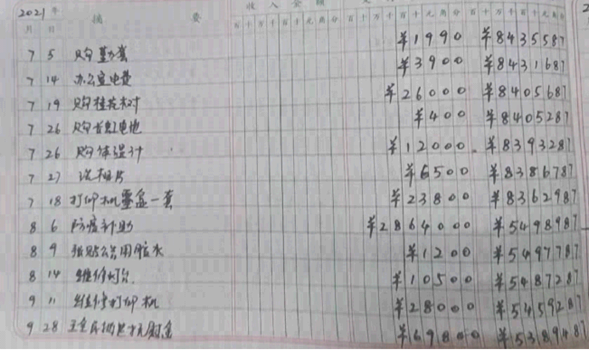 2021年 摘 要 收入金额
月 日 百十万千百十元角分 百十万千百十元角分 百十万千百十元角分
7 5 购 套 ¥1990 ¥8435587
7 14 办公室电费 ¥3900 ¥8431687
7 19 购桂花树 ¥26000 ¥8405687
7 26 购 电池 ¥400 ¥8405287
7 26 购体温计 ¥12000 ¥8393287
7 27 洗相片 ¥6500 ¥8386787
7 18 打印机墨盒一套 ¥23800 ¥8362987
8 6 防疫补助 ¥2864000 ¥5498987
8 9 张贴公告用胶水 ¥1200 ¥5497787
8 14 维修灯 ¥10500 ¥5487287
9 11 维修打印机 ¥28000 ¥5459287
9 28 ¥69800 ¥5389487